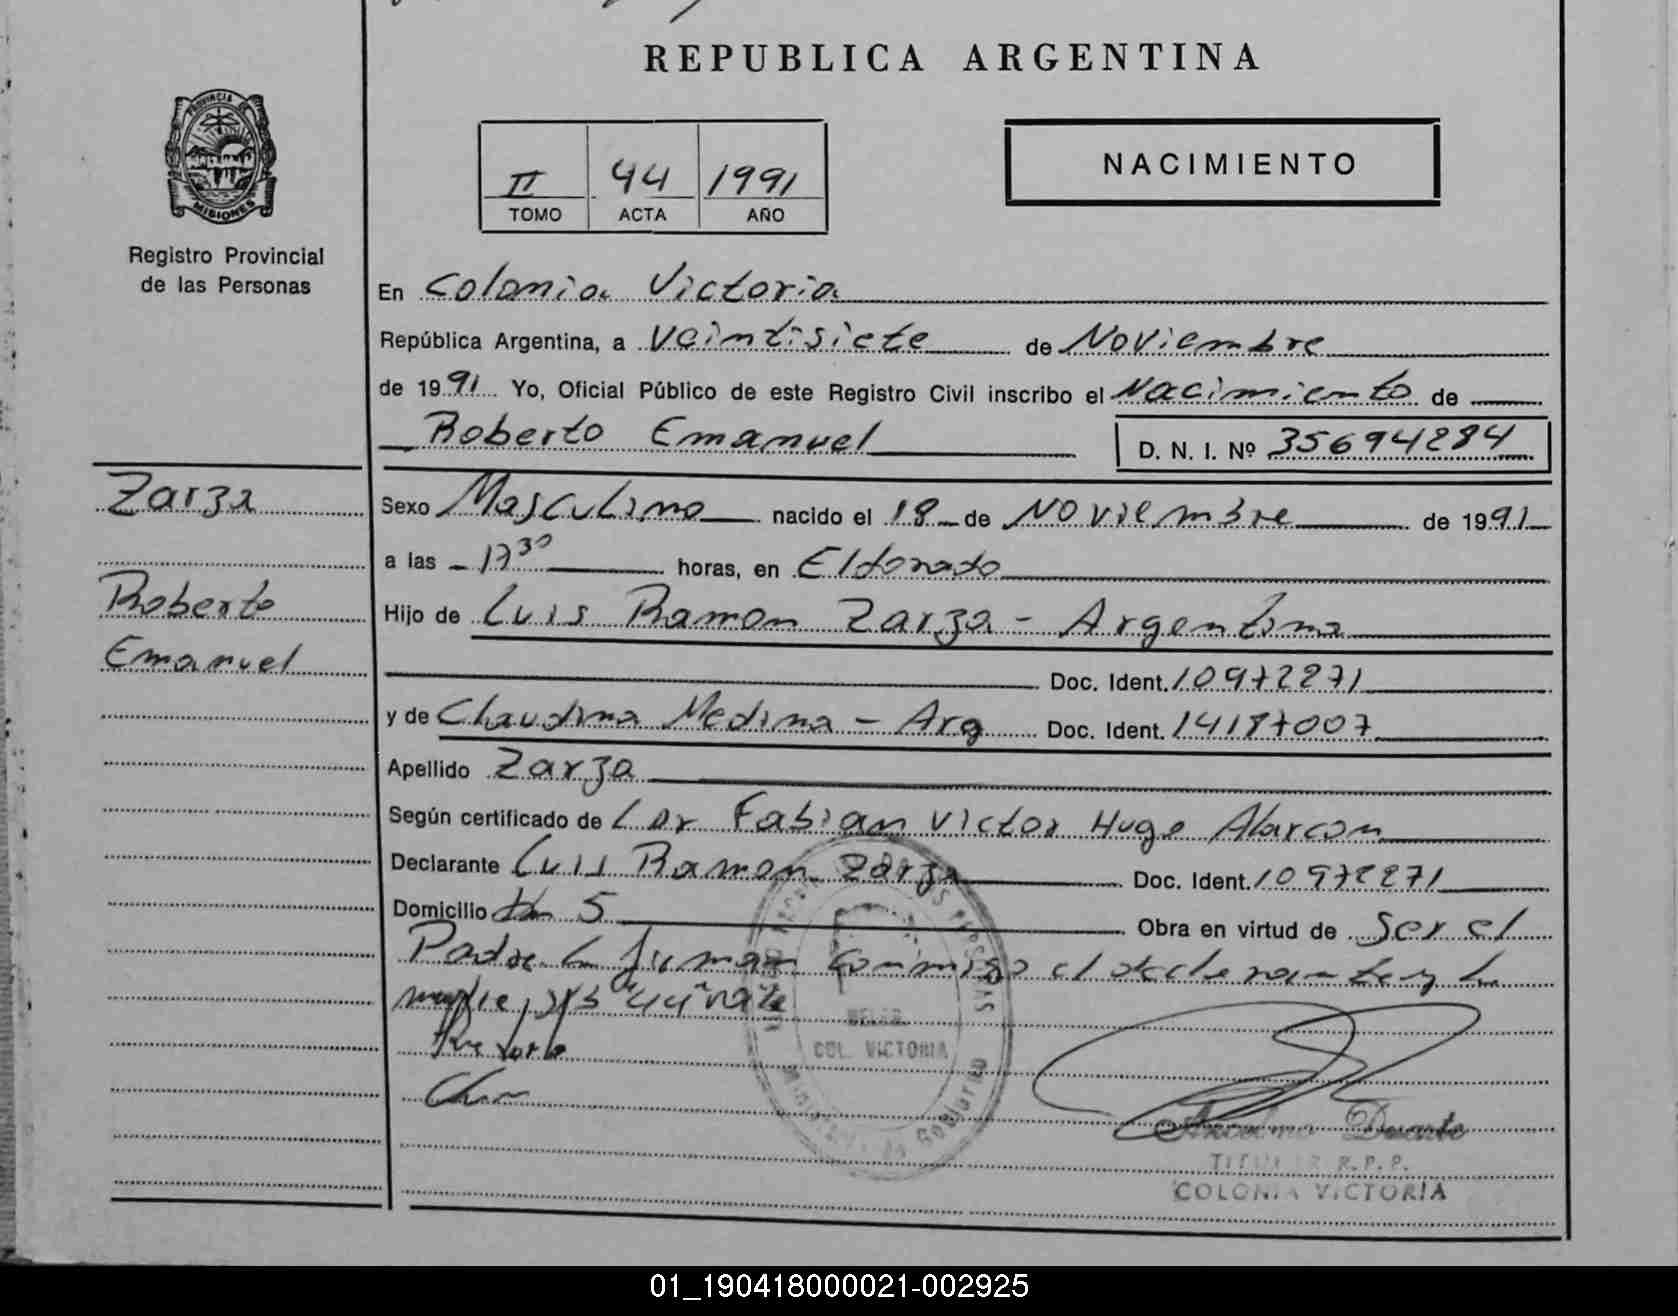 REPUBLICA ARGENTINA
PROVINCIA DE
MISIONES
Registro Provincial
de las Personas
II 44 1991
TOMO ACTA AÑO
NACIMIENTO
En Colonia Victoria
República Argentina, a Veintisiete de Noviembre
de 1991 Yo, Oficial Público de este Registro Civil inscribo el Nacimiento de
Roberto Emanuel D. N. I. Nº 35694284
Zarza
Roberto
Emanuel
Sexo Masculino nacido el 18 de Noviembre de 1991
a las 17 30 horas, en Eldorado
Hijo de Luis Ramon Zarza - Argentina
Doc. Ident. 10972271
y de Claudina Medina - Arg Doc. Ident. 14187007
Apellido Zarza
Según certificado de Fabian Victor Hugo Alarcon
Declarante Luis Ramon Zarza Doc. Ident. 10972271
Domicilio 5 Obra en virtud de Ser el
Padre firman conmigo el declarante y la
COL. VICTORIA
Gobierno
Anselmo Duarte
TITULAR R.P.P.
COLONIA VICTORIA
01_190418000021-002925